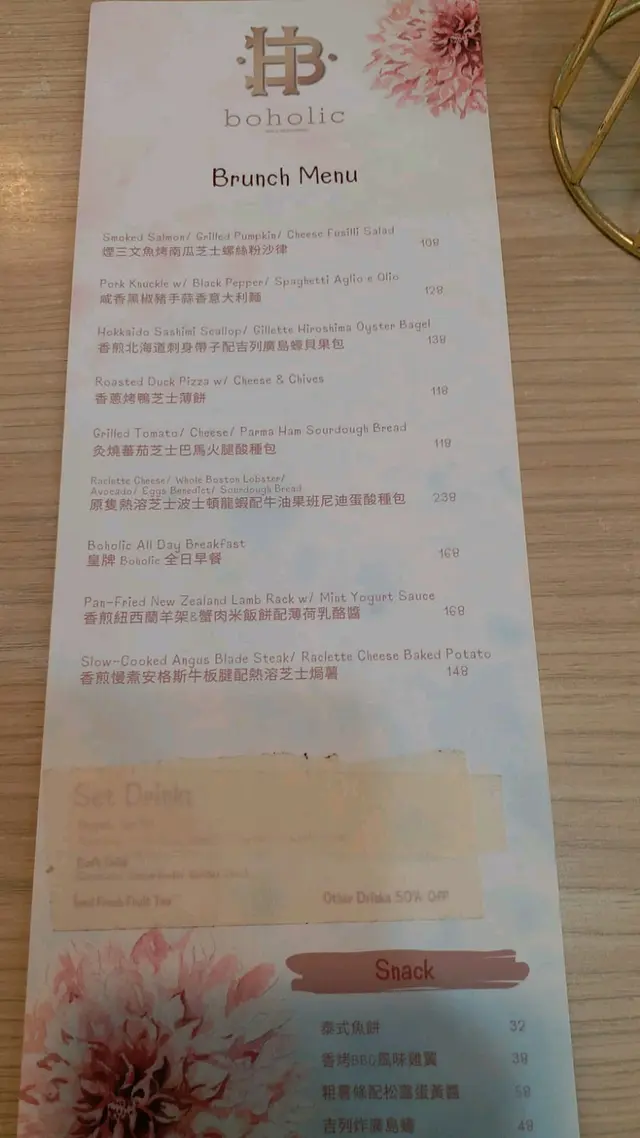 HB
boholic
Brunch Menu
Smoked Salmon/ Grilled Pumpkin/ Cheese Fusilli Salad
煙三文魚烤南瓜芝士螺絲粉沙律 108
Pork Knuckle w/ Black Pepper/ Spaghetti Aglio e Olio
咸香黑椒豬手蒜香意大利麵 128
Hokkaido Sashimi Scallop/ Gillette Hiroshima Oyster Bagel
香煎北海道刺身帶子配吉列廣島蠔貝果包 138
Roasted Duck Pizza w/ Cheese & Chives
香蔥烤鴨芝士薄餅 118
Grilled Tomato/ Cheese/ Parma Ham Sourdough Bread
灸燒蕃茄芝士巴馬火腿酸種包 118
Raclette Cheese/ Whole Boston Lobster/
Avocado/ Eggs Benedict/ Sourdough Bread
原隻熱溶芝士波士頓龍蝦配牛油果班尼迪蛋酸種包 238
Boholic All Day Breakfast
皇牌 Boholic 全日早餐 168
Pan-Fried New Zealand Lamb Rack w/ Mint Yogurt Sauce
香煎紐西蘭羊架&蟹肉米飯餅配薄荷乳酪醬 168
Slow-Cooked Angus Blade Steak/ Raclette Cheese Baked Potato
香煎慢煮安格斯牛板腱配熱溶芝士焗薯 148
Set Drinks
Iced Fresh Fruit Tea
Other Drinks 50% Off
Snack
泰式魚餅 32
香烤BBQ風味雞翼 38
粗薯條配松露蛋黃醬 58
吉列炸廣島蠔 48